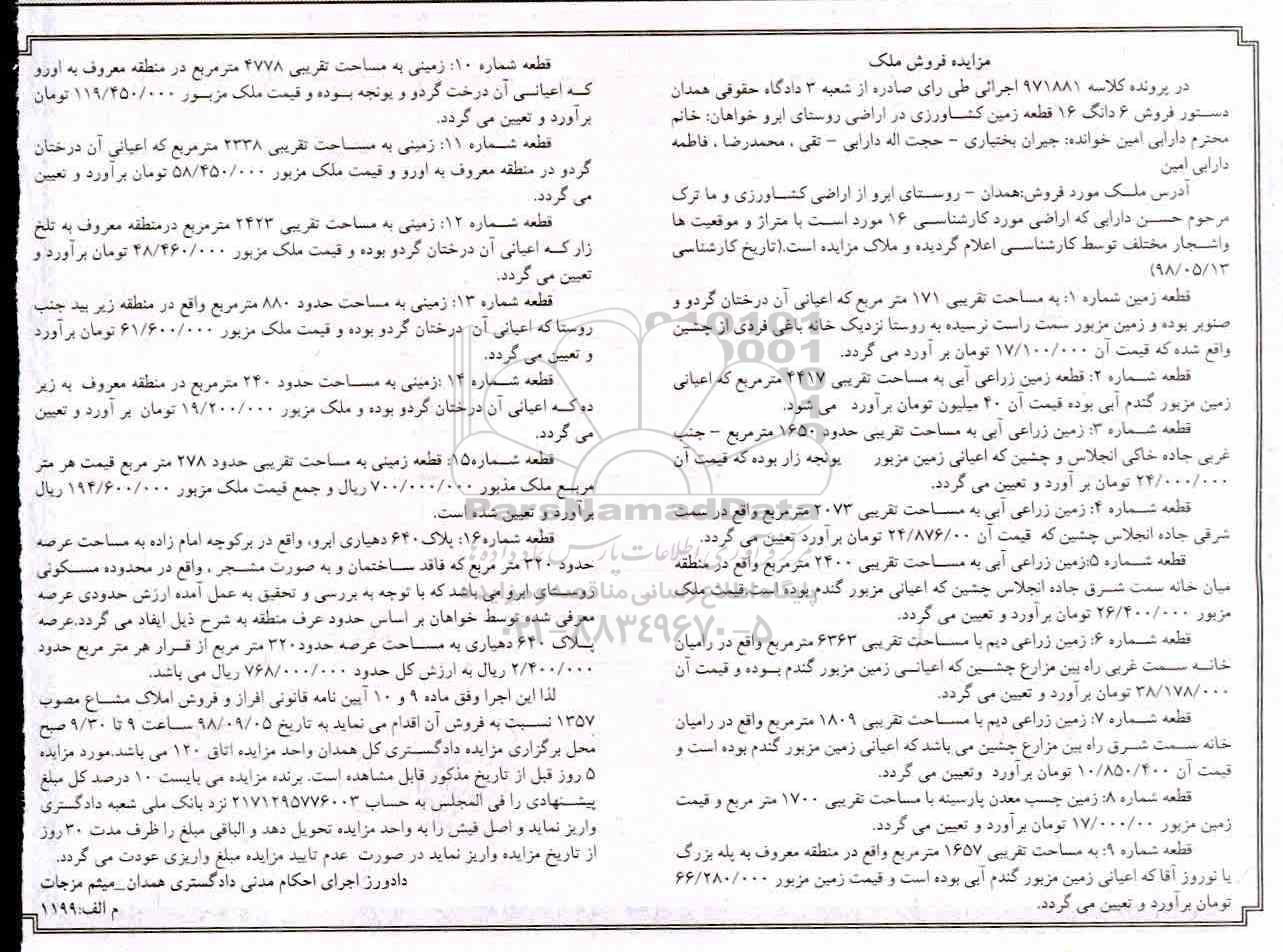 مزایده فروش ملک
در پرونده کلاسه ۹۷۱۸۸۱ اجرائی طی رای صادره از شعبه ۳ دادگاه حقوقی همدان
دستور فروش ۶ دانگ ۱۶ قطعه زمین کشاورزی در اراضی روستای ابرو خواهان: خانم
محترم دارابی امین خوانده: جیران بختیاری - حجت اله دارابی - تقی ، محمدرضا ، فاطمه
دارابی امین
آدرس ملک مورد فروش:همدان - روستای ابرو از اراضی کشاورزی و ما ترک
مرحوم حسن دارابی که اراضی مورد کارشناسی ۱۶ مورد است با متراژ و موقعیت ها
واشجار مختلف توسط کارشناسی اعلام گردیده و ملاک مزایده است.(تاریخ کارشناسی
۹۸/۰۵/۱۳)
قطعه زمین شماره ۱: به مساحت تقریبی ۱۷۱ متر مربع که اعیانی آن درختان گردو و
صنوبر بوده و زمین مزبور سمت راست نرسیده به روستا نزدیک خانه باغی فردی از چشین
واقع شده که قیمت آن ۱۷/۱۰۰/۰۰۰ تومان بر آورد می گردد.
قطعه شماره ۲: قطعه زمین زراعی آبی به مساحت تقریبی ۴۴۱۷ مترمربع که اعیانی
زمین مزبور گندم آبی بوده قیمت آن ۴۰ میلیون تومان برآورد می شود.
قطعه شماره ۳: زمین زراعی آبی به مساحت تقریبی حدود ۱۶۵۰ مترمربع - جنب
غربی جاده خاکی انجلاس و چشین که اعیانی زمین مزبور یونجه زار بوده که قیمت آن
۲۴/۰۰۰/۰۰۰ تومان بر آورد و تعیین می گردد.
قطعه شماره ۴: زمین زراعی آبی به مساحت تقریبی ۲۰۷۳ مترمربع واقع در سمت
شرقی جاده انجلاس چشین که قیمت آن ۲۴/۸۷۶/۰۰ تومان برآورد تعیین می گردد.
قطعه شماره ۵:زمین زراعی آبی به مساحت تقریبی ۲۴۰۰ مترمربع واقع در منطقه
میان خانه سمت شرق جاده انجلاس چشین که اعیانی مزبور گندم بوده است قیمت ملک
مزبور ۲۶/۴۰۰/۰۰۰ تومان برآورد و تعیین می گردد.
قطعه شماره ۶: زمین زراعی دیم با مساحت تقریبی ۶۳۶۳ مترمربع واقع در رامیان
خانه سمت غربی راه بین مزارع چشین که اعیانی زمین مزبور گندم بوده و قیمت آن
۳۸/۱۷۸/۰۰۰ تومان برآورد و تعیین می گردد.
قطعه شماره ۷: زمین زراعی دیم با مساحت تقریبی ۱۸۰۹ مترمربع واقع در رامیان
خانه سمت شرق راه بین مزارع چشین می باشد که اعیانی زمین مزبور گندم بوده است و
قیمت آن ۱۰/۸۵۰/۴۰۰ تومان برآورد وتعیین می گردد.
قطعه شماره ۸: زمین چسب معدن پارسینه با مساحت تقریبی ۱۷۰۰ متر مربع و قیمت
زمین مزبور ۱۷/۰۰۰/۰۰ تومان برآورد و تعیین می گردد.
قطعه شماره ۹: به مساحت تقریبی ۱۶۵۷ مترمربع واقع در منطقه معروف به پله بزرگ
یا نوروز آقا که اعیانی زمین مزبور گندم آبی بوده است و قیمت زمین مزبور ۶۶/۲۸۰/۰۰۰
تومان برآورد و تعیین می گردد.
قطعه شماره ۱۰: زمینی به مساحت تقریبی ۴۷۷۸ مترمربع در منطقه معروف به اورو
که اعیانی آن درخت گردو و یونجه بوده و قیمت ملک مزبور ۱۱۹/۴۵۰/۰۰۰ تومان
برآورد و تعیین می گردد.
قطعه شماره ۱۱: زمینی به مساحت تقریبی ۲۳۳۸ مترمربع که اعیانی آن درختان
گردو در منطقه معروف به اورو و قیمت ملک مزبور ۵۸/۴۵۰/۰۰۰ تومان برآورد و تعیین
می گردد.
قطعه شماره ۱۲: زمینی به مساحت تقریبی ۲۴۲۳ مترمربع درمنطقه معروف به تلخ
زار که اعیانی آن درختان گردو بوده و قیمت ملک مزبور ۴۸/۴۶۰/۰۰۰ تومان برآورد و
تعیین می گردد.
قطعه شماره ۱۳: زمینی به مساحت حدود ۸۸۰ مترمربع واقع در منطقه زیر بید جنب
روستا که اعیانی آن درختان گردو بوده و قیمت ملک مزبور ۶۱/۶۰۰/۰۰۰ تومان برآورد
و تعیین می گردد.
قطعه شماره ۱۴ :زمینی به مساحت حدود ۲۴۰ مترمربع در منطقه معروف به زیر
ده که اعیانی آن درختان گردو بوده و ملک مزبور ۱۹/۲۰۰/۰۰۰ تومان بر آورد و تعیین
می گردد.
قطعه شماره۱۵: قطعه زمینی به مساحت تقریبی حدود ۲۷۸ متر مربع قیمت هر متر
مربع ملک مذبور ۷۰۰/۰۰۰/۰۰۰ ریال و جمع قیمت ملک مزبور ۱۹۴/۶۰۰/۰۰۰ ریال
برآورد و تعیین شده است.
قطعه شماره۱۶: پلاک۶۴۰ دهیاری ابرو، واقع در برکوچه امام زاده به مساحت عرصه
حدود ۳۲۰ متر مربع که فاقد ساختمان و به صورت مشجر ، واقع در محدوده مسکونی
روستای ابرو می باشد که با توجه به بررسی و تحقیق به عمل آمده ارزش حدودی عرصه
معرفی شده توسط خواهان بر اساس حدود عرف منطقه به شرح ذیل ایفاد می گردد.عرصه
پلاک ۶۴۰ دهیاری به مساحت عرصه حدود۳۲۰ متر مربع از قرار هر متر مربع حدود
۲/۴۰۰/۰۰۰ ریال به ارزش کل حدود ۷۶۸/۰۰۰/۰۰۰ ریال می باشد.
لذا این اجرا وفق ماده ۹ و ۱۰ آیین نامه قانونی افراز و فروش املاک مشاع مصوب
۱۳۵۷ نسبت به فروش آن اقدام می نماید به تاریخ ۹۸/۰۹/۰۵ ساعت ۹ تا ۹/۳۰ صبح
محل برگزاری مزایده دادگستری کل همدان واحد مزایده اتاق ۱۲۰ می باشد.مورد مزایده
۵ روز قبل از تاریخ مذکور قابل مشاهده است. برنده مزایده می بایست ۱۰ درصد کل مبلغ
پیشنهادی را فی المجلس به حساب ۲۱۷۱۲۹۵۷۷۶۰۰۳ نزد بانک ملی شعبه دادگستری
واریز نماید و اصل فیش را به واحد مزایده تحویل دهد و الباقی مبلغ را ظرف مدت ۳۰ روز
از تاریخ مزایده واریز نماید در صورت عدم تایید مزایده مبلغ واریزی عودت می گردد.
دادورز اجرای احکام مدنی دادگستری همدان_میثم مزجات
م الف:۱۱۹۹
ParsNamadData
پایگاه اطلاع رسانی مناقصه و مزایده
۰۲۱-۸۸۳۴۹۶۷۰-۵